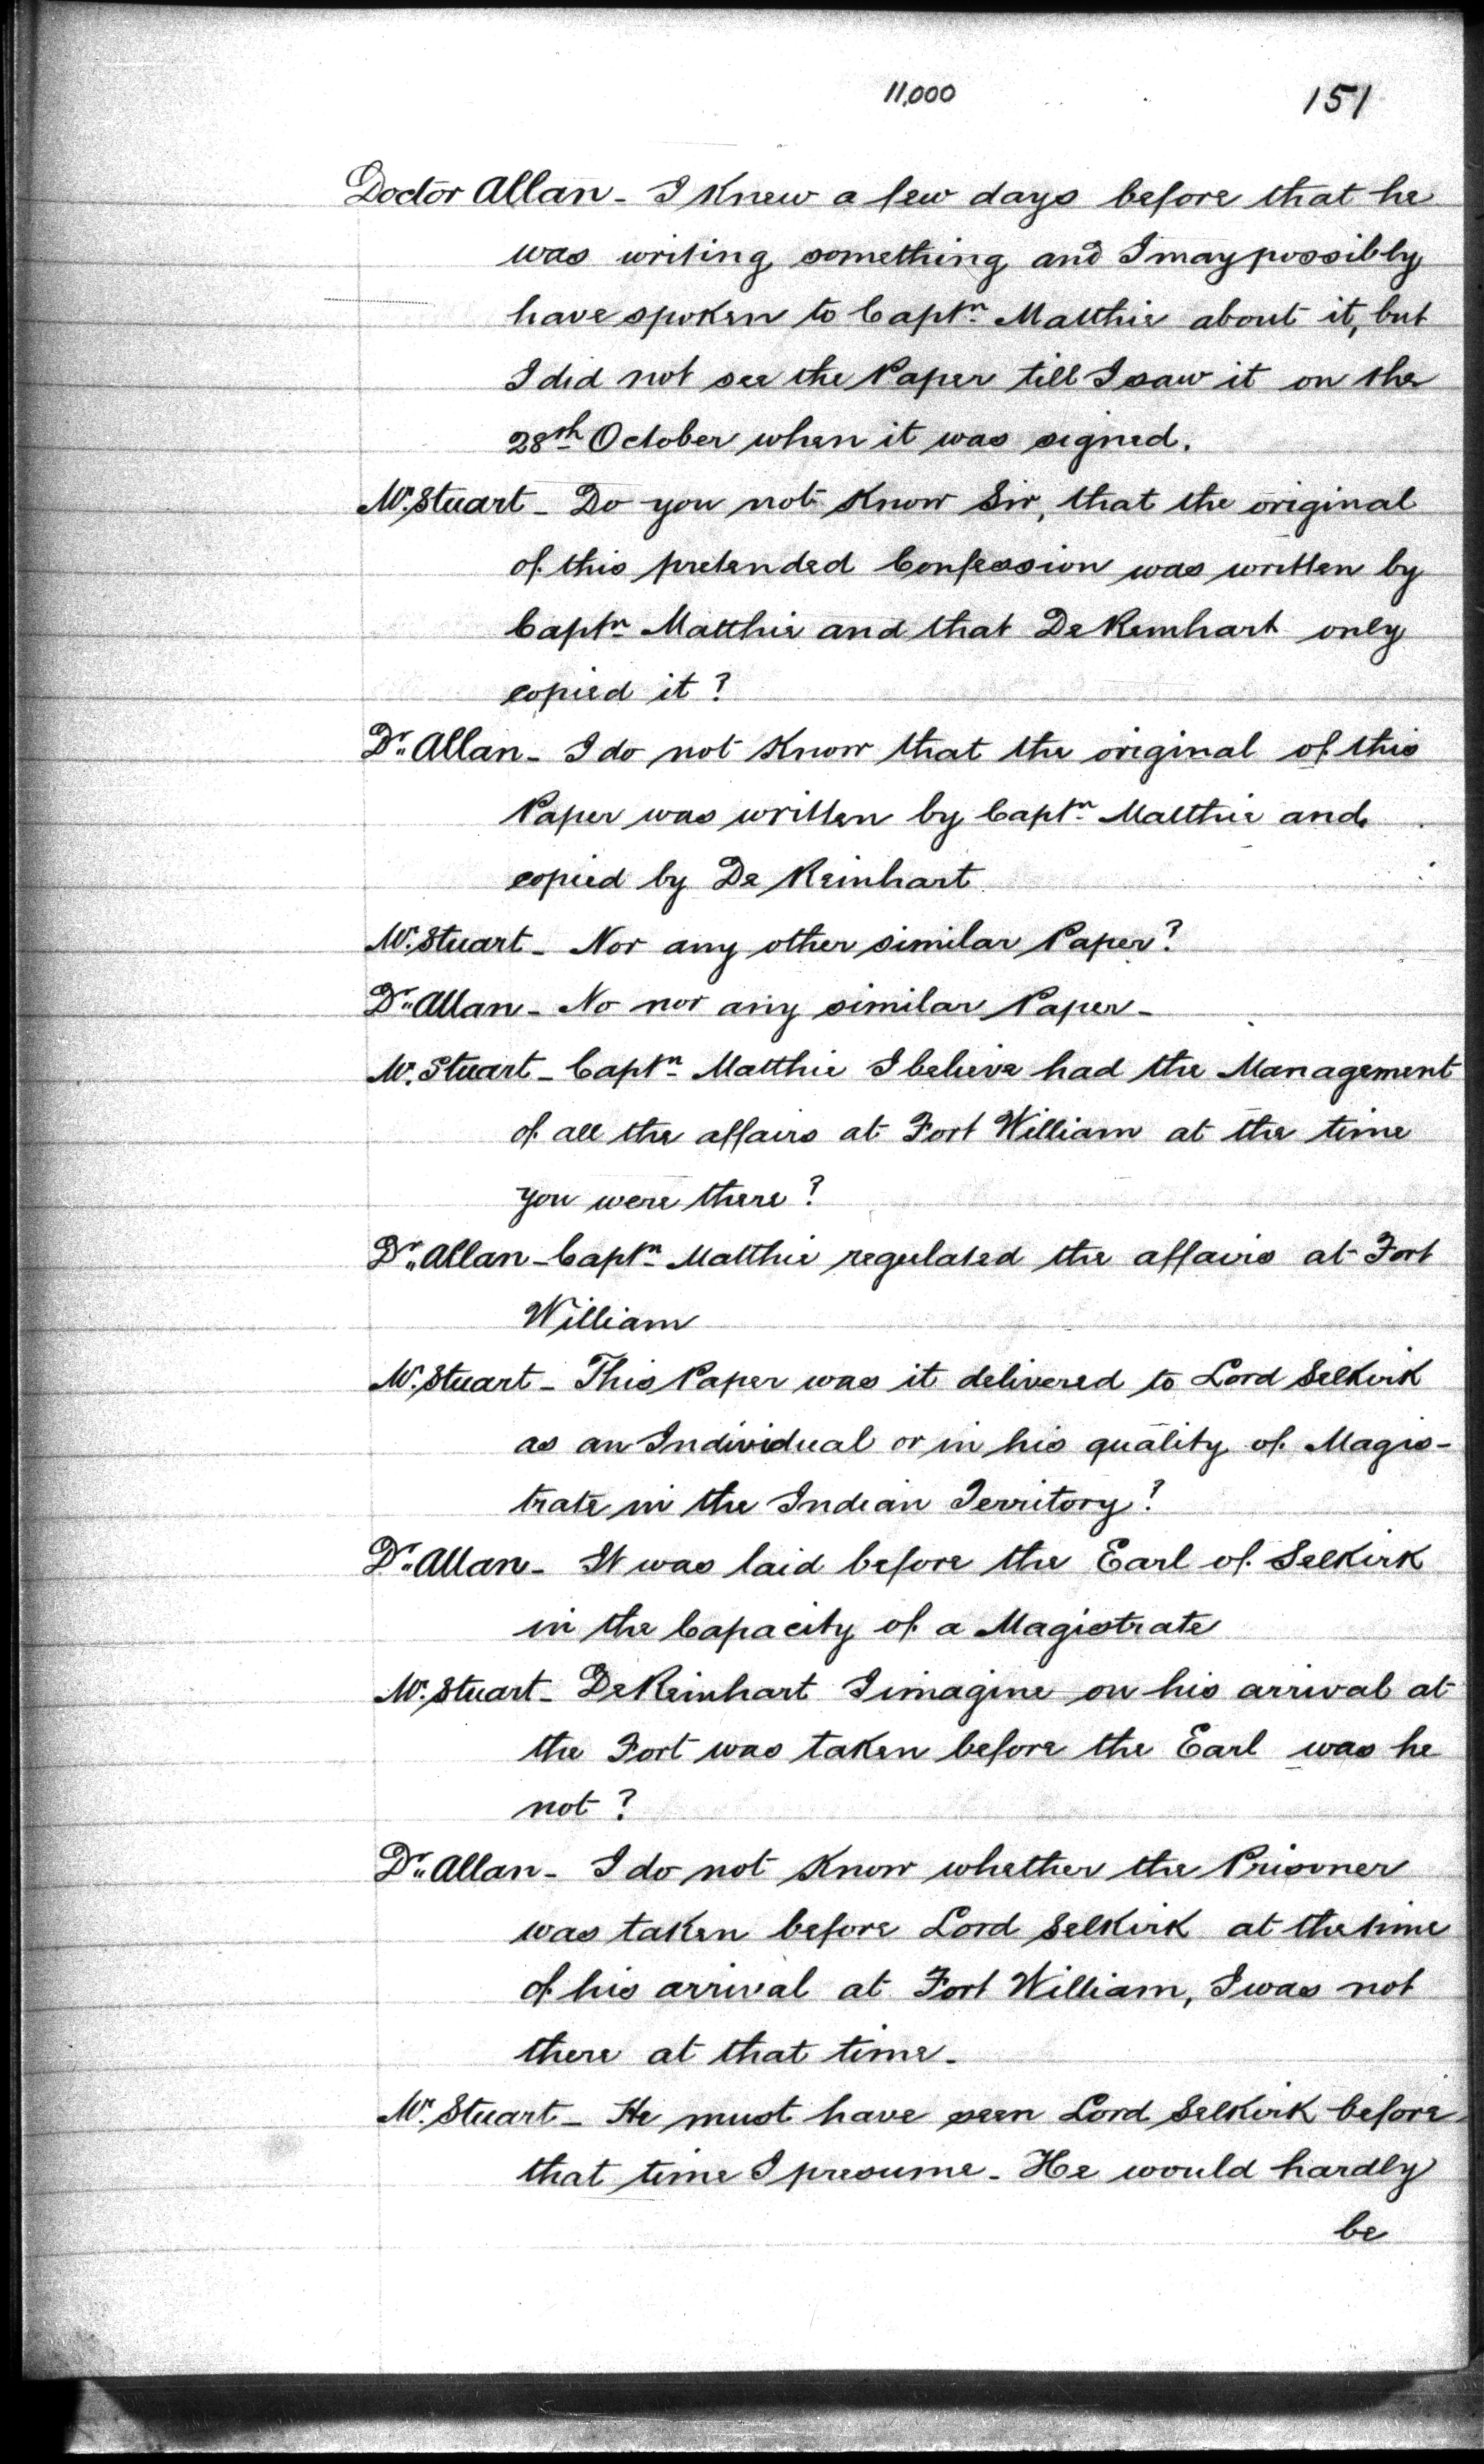 11,000
151
Doctor Allan - I Knew a few days before that he
was writing something and I may possibly
have spoken to Captn. Matthie about it, but
I did not see the Paper till I saw it on the
28th October when it was signed.
Mr. Stuart - Do you not Know Sir, that the original
of this pretended Confession was written by
Captn. Matthie and that De Reinhart only
copied it?
Dr. Allan - I do not Know that the original of this
Paper was written by Captn. Matthie and
copied by De Reinhart
Mr. Stuart - Nor any other similar Paper?
Dr. Allan - No nor any similar Paper -
Mr. Stuart - Captn. Matthie I believe had the Management
of all the affairs at Fort William at the time
you were there?
Dr. Allan - Captn. Matthie regulated the affairs at Fort
William
Mr. Stuart - This Paper was it delivered to Lord Selkirk
as an Individual or in his quality of Magis-
trate in the Indian Territory?
Dr. Allan - It was laid before the Earl of Selkirk
in the Capacity of a Magistrate
Mr. Stuart - De Reinhart I imagine on his arrival at
the Fort was taken before the Earl was he
not?
Dr. Allan - I do not Know whether the Prisoner
was taken before Lord Selkirk at the time
of his arrival at Fort William, I was not
there at that time -
Mr. Stuart - He must have seen Lord Selkirk before
that time I presume - He would hardly
be